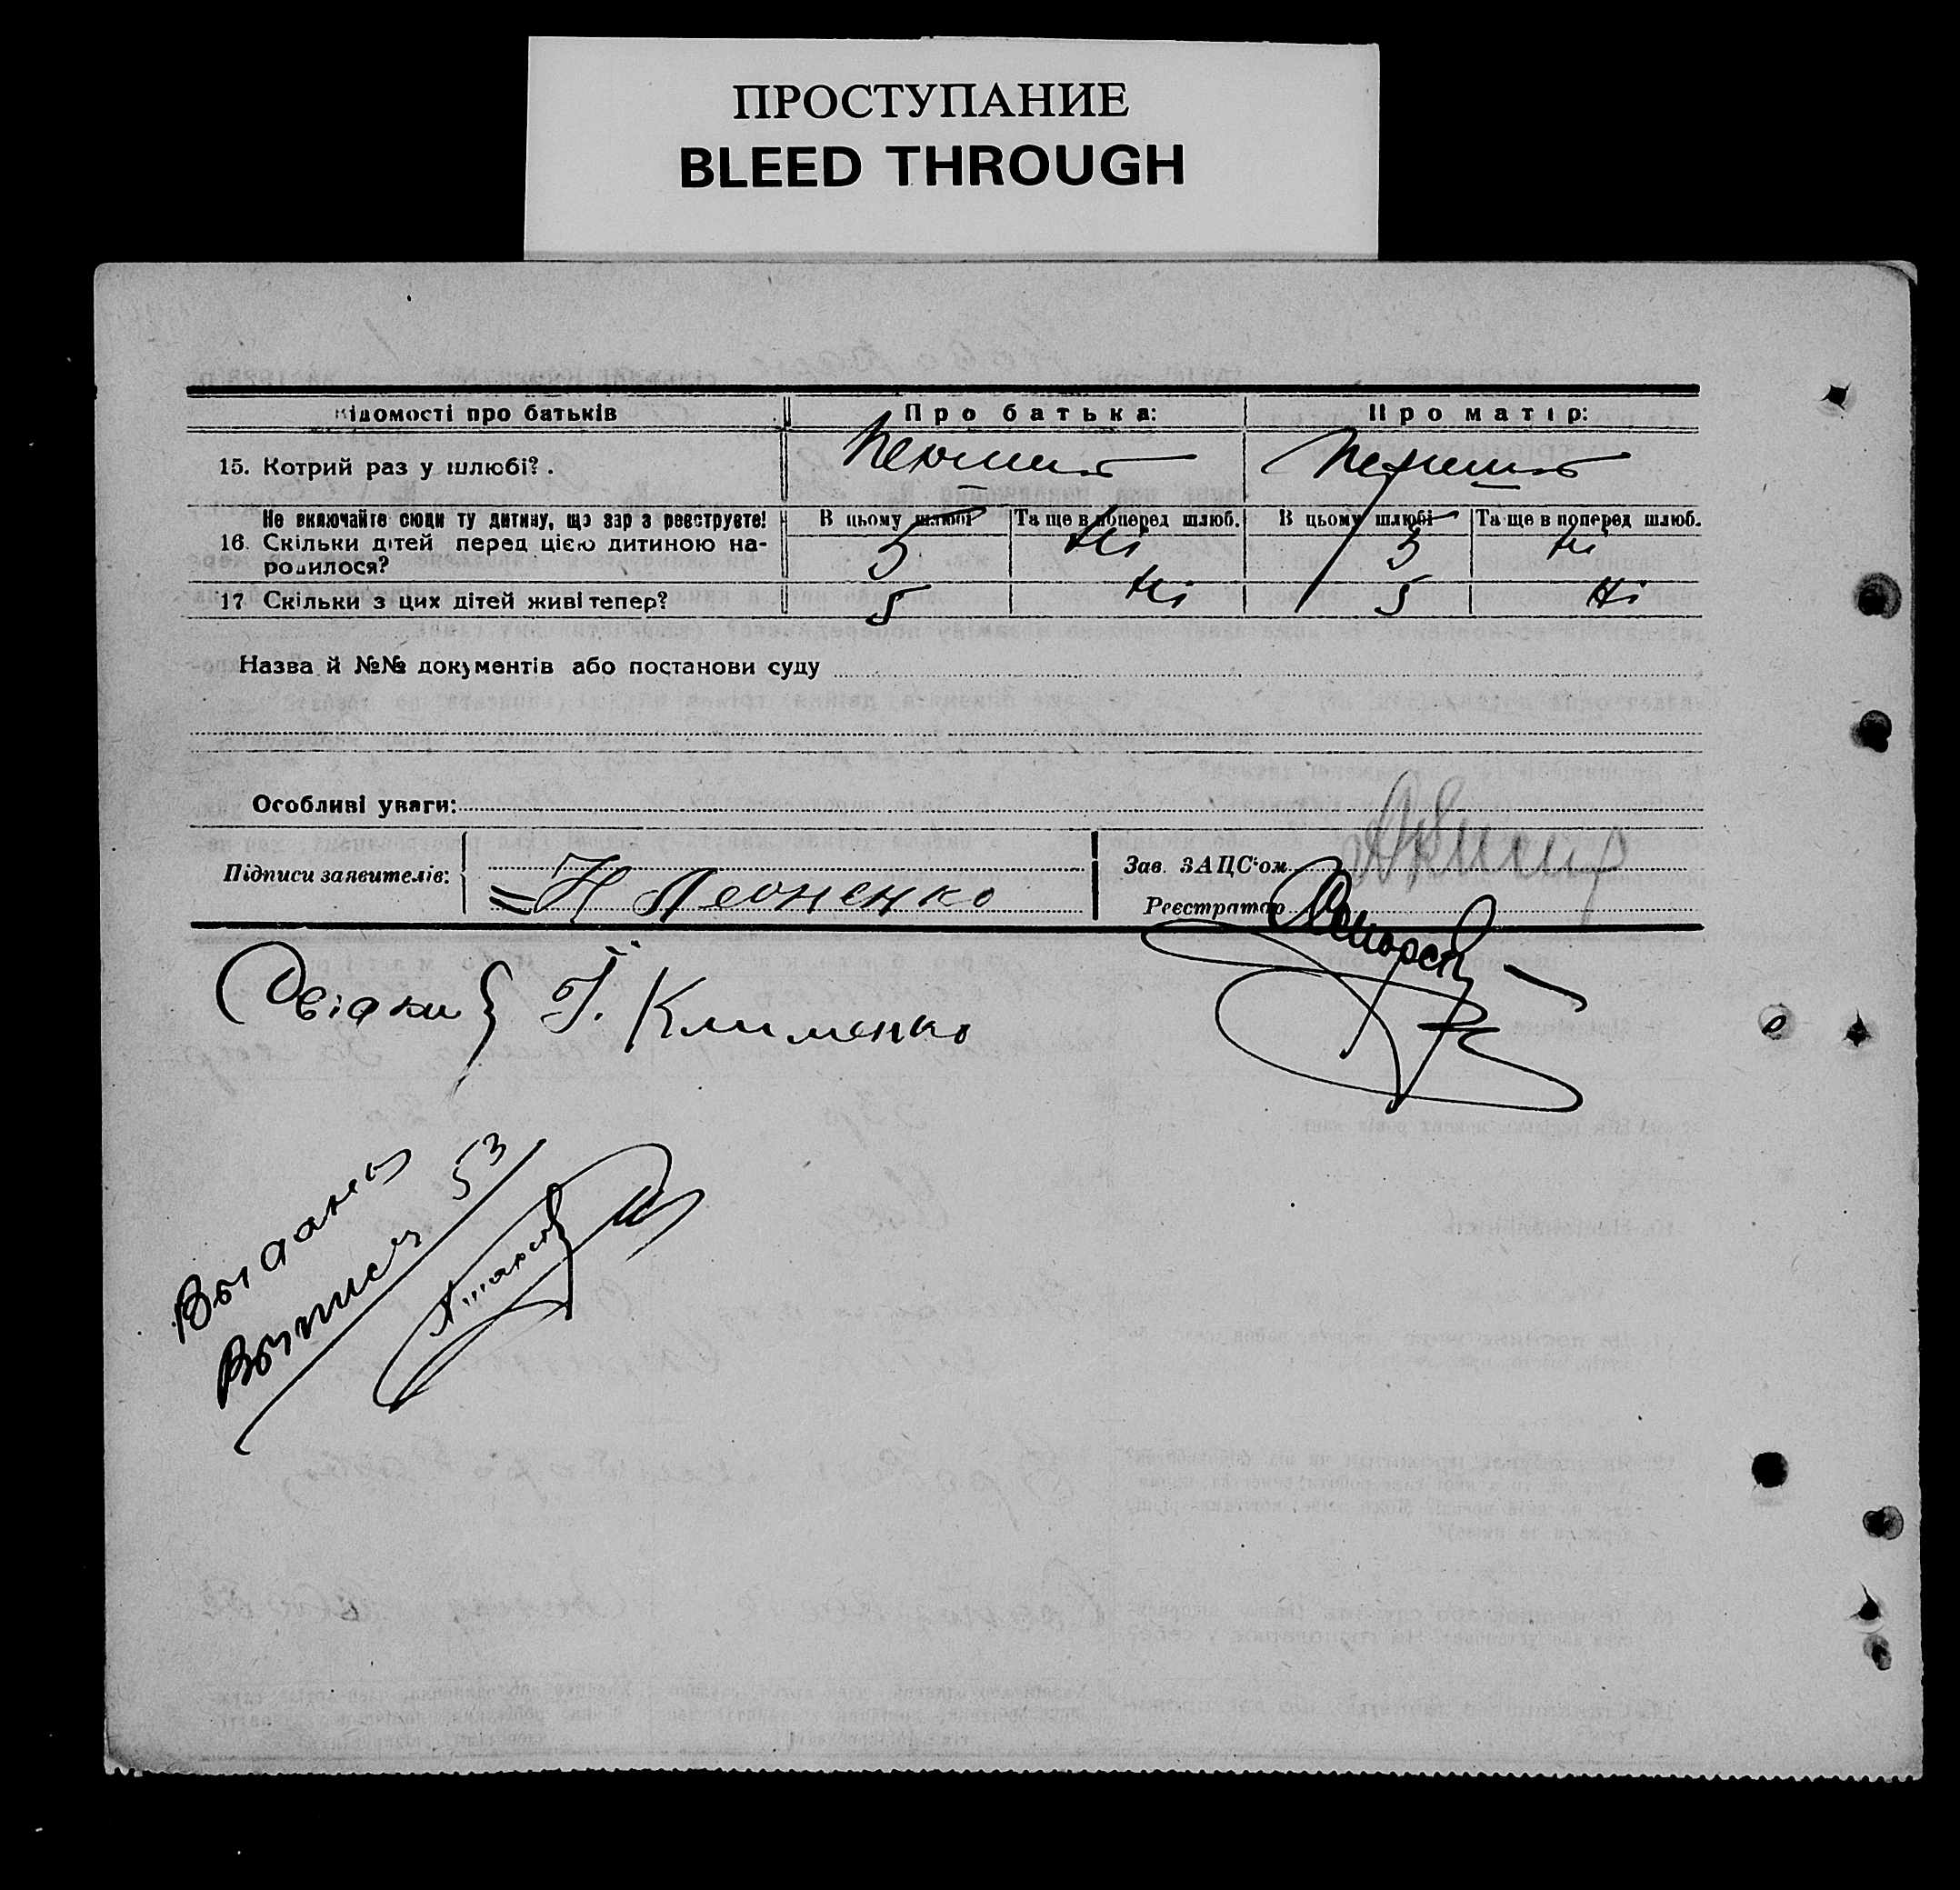 ПРОСТУПАНИЕ
BLEED THROUGH
Відомості про батьків Про батька: Про матір:
15. Котрий раз у шлюбі? . Перший Перший
Не включайте сюди ту дитину, що зараз реєструєте! В цьому шлюбі Та ще в поперед шлюб. В цьому шлюбі Та ще в поперед шлюб.
16. Скільки дітей перед цією дитиною на- 5 Ні 5 Ні
родилося?
17 Скільки з цих дітей живі тепер? 5 Ні 5 Ні
Назва й №№ документів або постанови суду
Особливі уваги:
Підписи заявителів: Н Леоненко
Зав. ЗАЦС'ом
Реєстратор
Свідки } Ї. Клименко
Выдана
Выпись 53